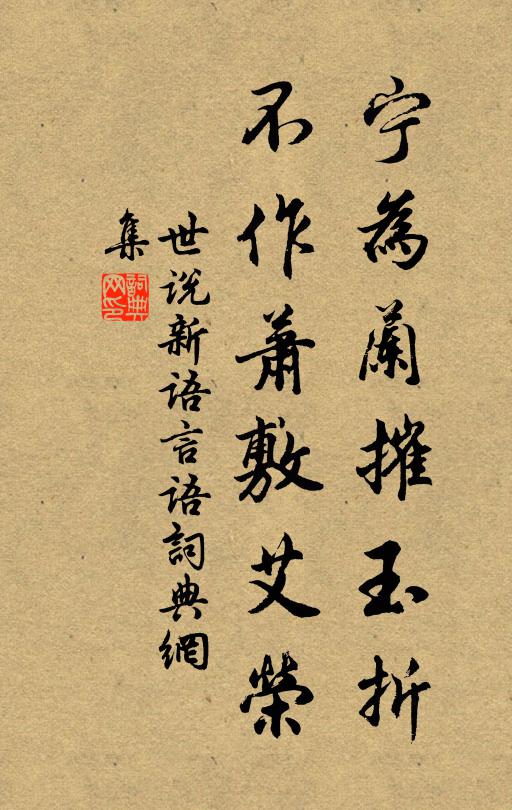 宁為蘭摧玉折
不作蕭敷艾榮
世说新語言語詞典網
集
詞典
网印